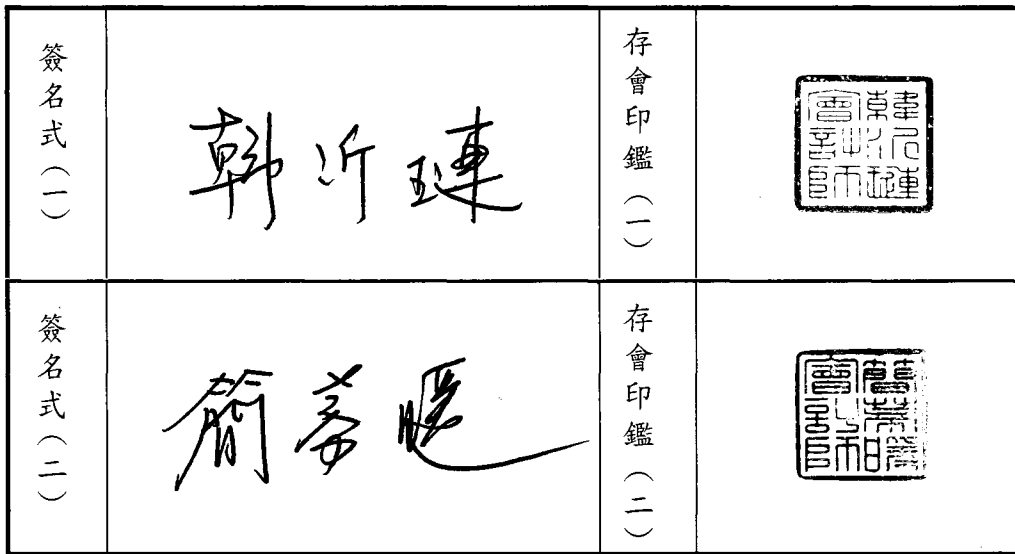 簽名式(一)
韓沂璉
存會印鑑(一)
韓沂璉會計師印
簽名式(二)
簡蒂暖
存會印鑑(二)
簡蒂暖會計師印